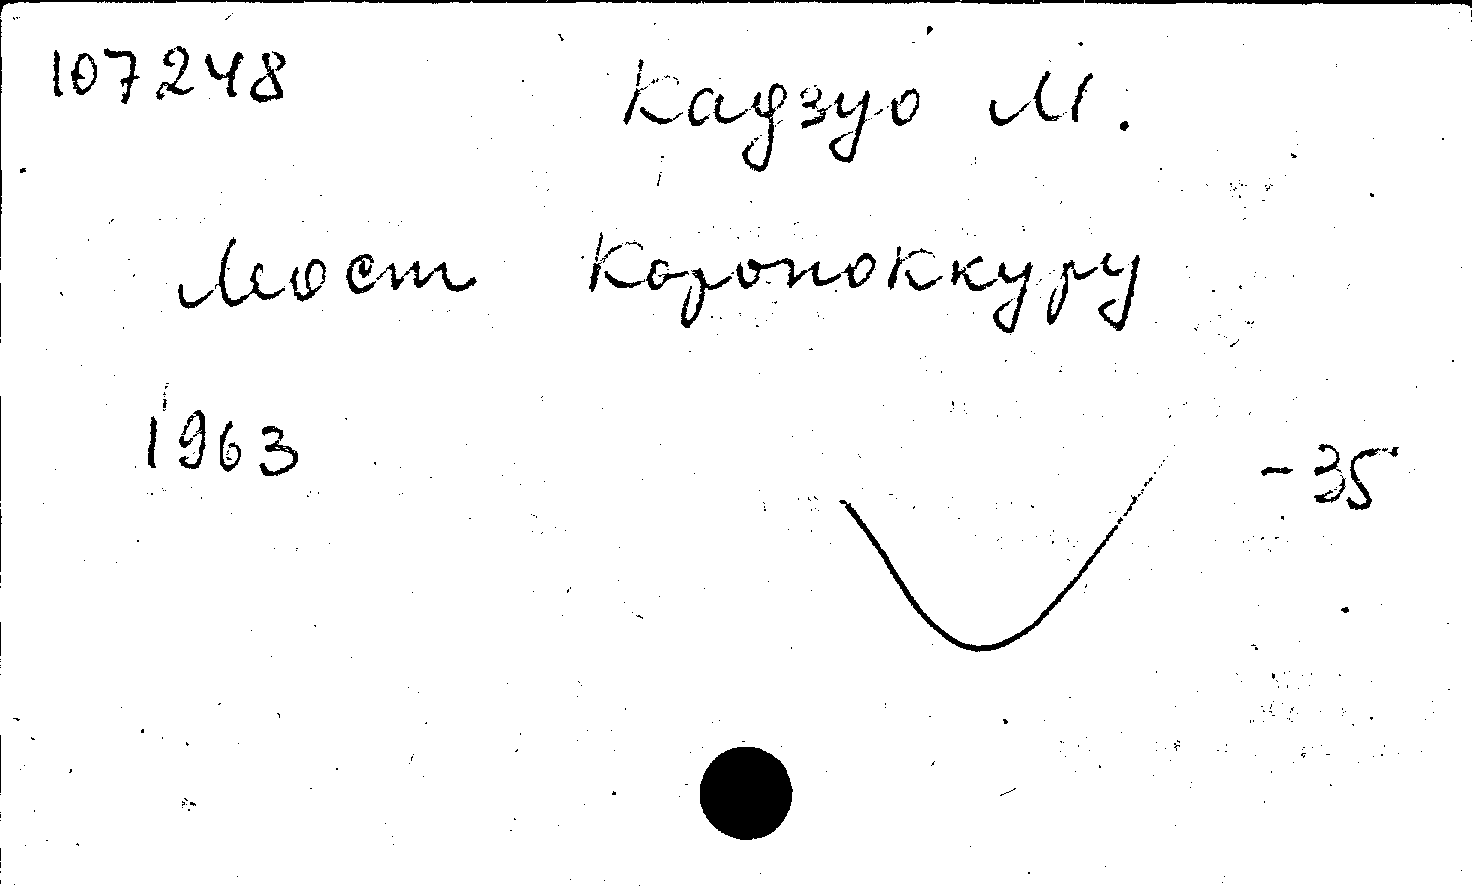 107248
Кадзуо М.
Мост Коропоккуру
1963
-35